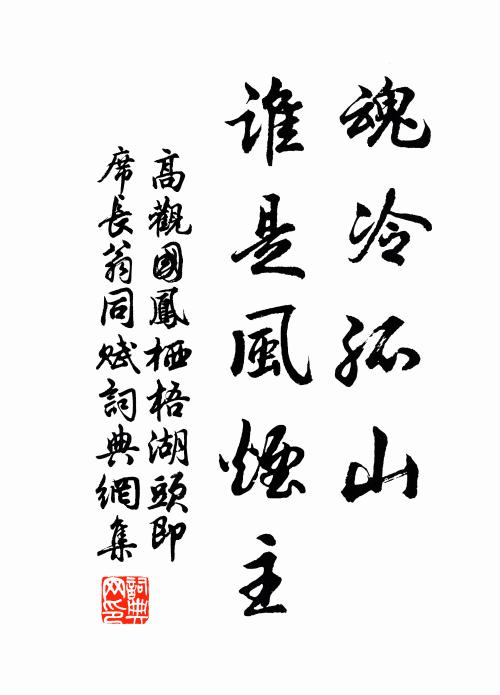 魂冷孤山
誰是風煙主
高觀國鳳栖梧湖頭即
席長翁同賦詞典網集
詞典網印